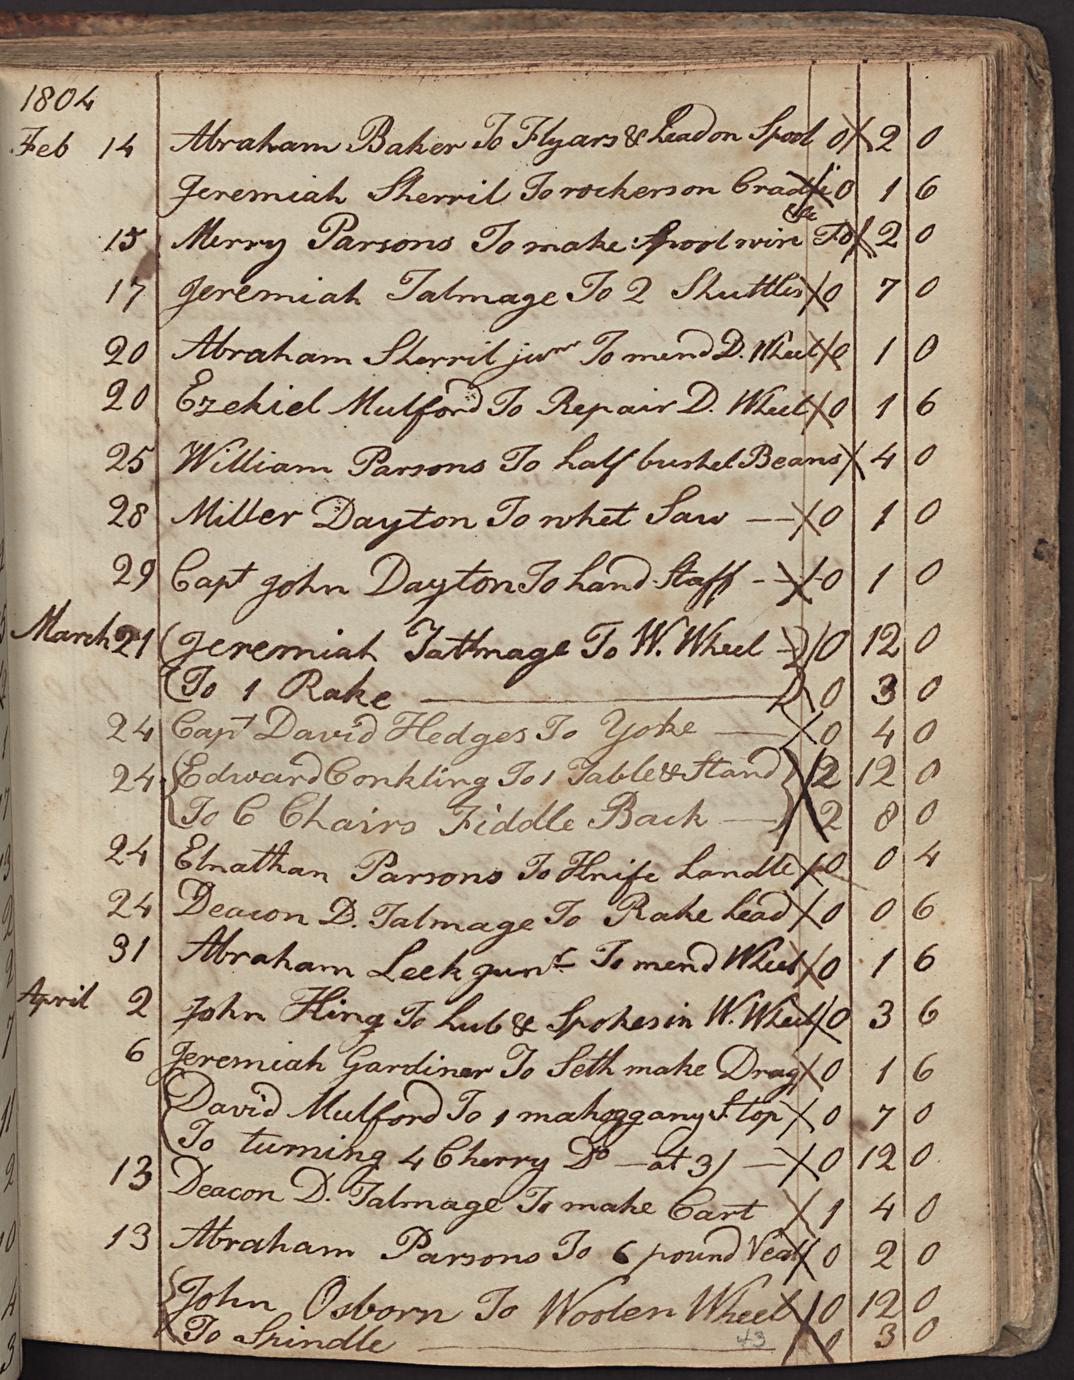 1804
Feb 14 Abraham Baker To Flyars & head on Spool 0 2 0
Jeremiah Sherril To rockers on Cradle 0 1 6
15 Merry Parsons To make Spool wire &c 0 2 0
17 Jeremiah Talmage To 2 Shuttles 0 7 0
20 Abraham Sherril junr To mend D. Wheel 0 1 0
20 Ezekiel Mulford To Repair D. Wheel 0 1 6
25 William Parsons To half bushel Beans 4 0
28 Miller Dayton To whet Saw — 0 1 0
29 Capt John Dayton To hand Staff - 0 1 0
March 21 Jeremiah Talmage To W. Wheel - 0 12 0
To 1 Rake — 0 3 0
24 Capt David Hedges To Yoke — 0 4 0
24 Edward Conkling To 1 Table & Stand 2 12 0
To 6 Chairs Fiddle Back — 2 8 0
24 Elnathan Parsons To Knife handle 0 0 4
24 Deacon D. Talmage To Rake head 0 0 6
31 Abraham Leek junr To mend Wheel 0 1 6
April 2 John King To hub & Spokes in W. Wheel 0 3 6
6 Jeremiah Gardiner To Seth make Drag 0 1 6
David Mulford To 1 mahoggany S. top 0 7 0
To turning 4 Cherry Do — at 3/ — 0 12 0
13 Deacon D. Talmage To make Cart 1 4 0
13 Abraham Parsons To 6 pound Veal 0 2 0
John Osborn To Woolen Wheel 0 12 0
To Spindle — 0 3 0
43